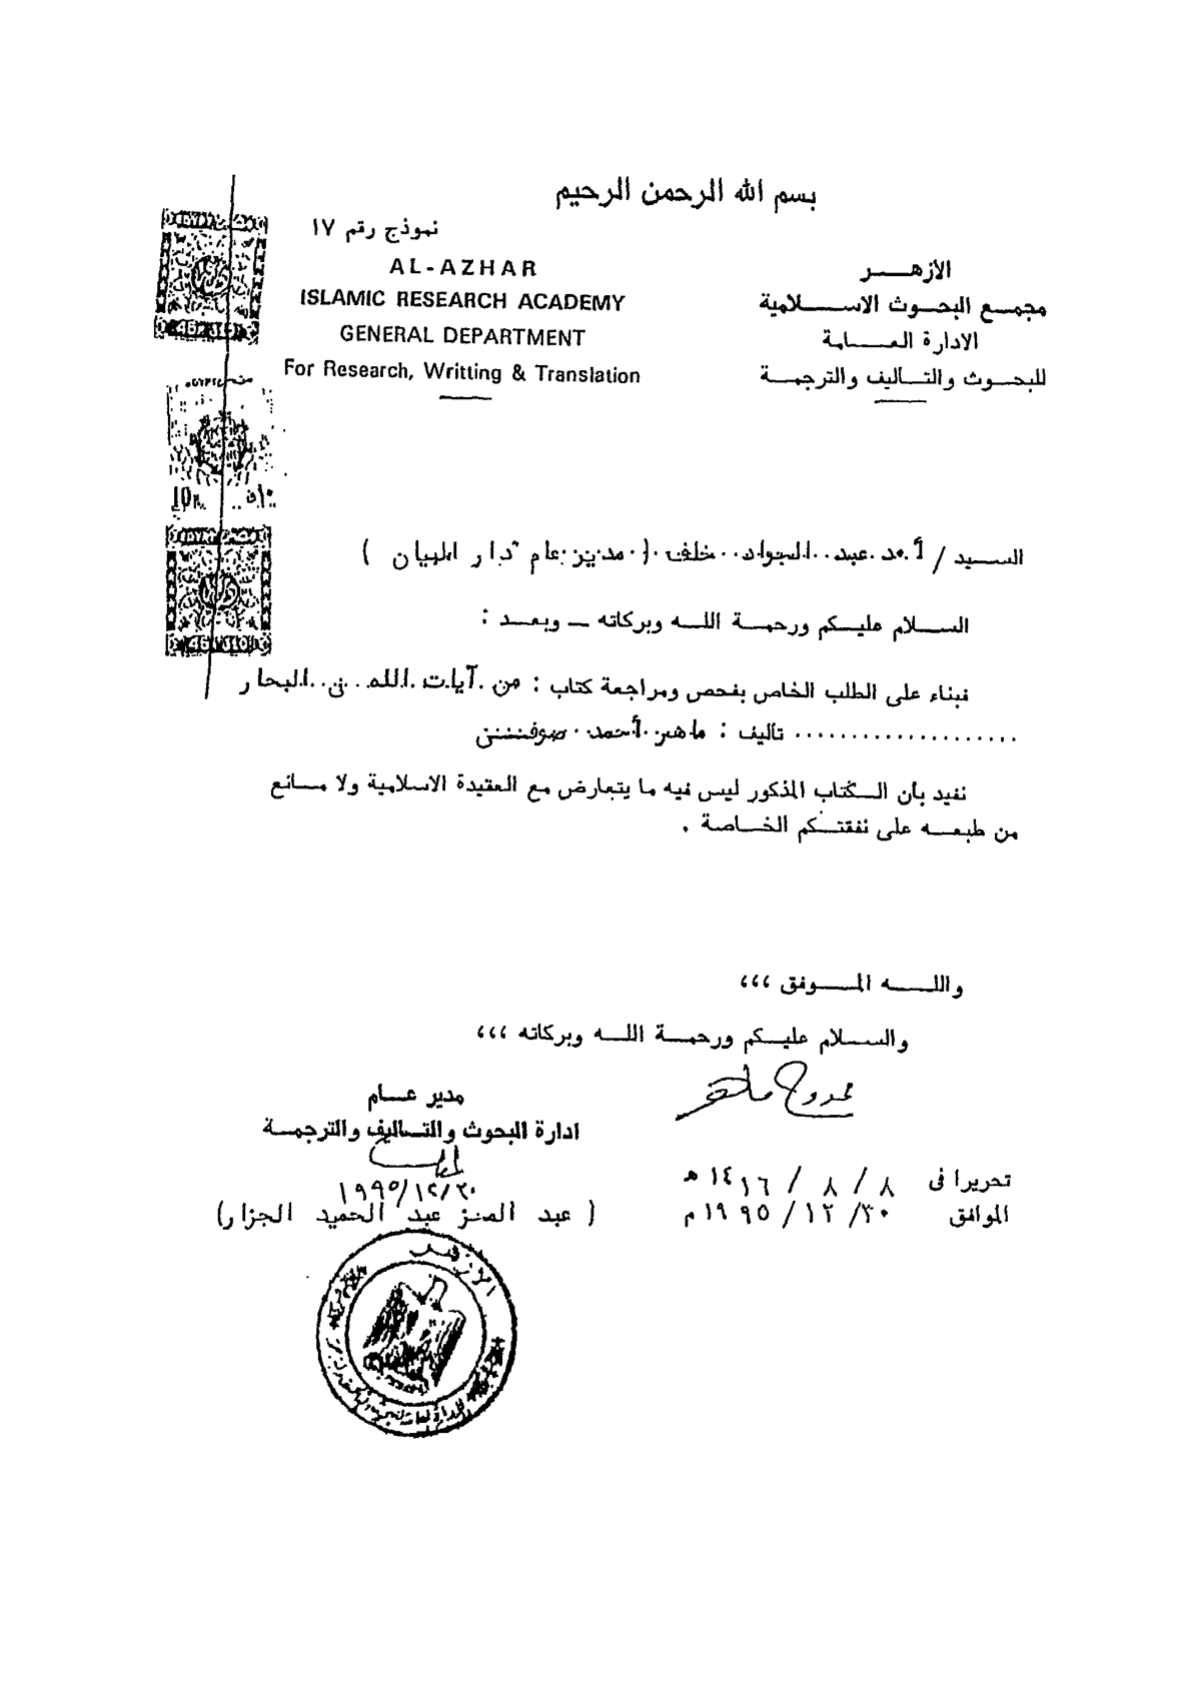 بسم الله الرحمن الرحيم
نموذج رقم ١٧
الأزهـــر
مجمـع البحـوث الاســلامية
الادارة العـــامة
للبحـوث والتـأليف والترجمـة
AL-AZHAR
ISLAMIC RESEARCH ACADEMY
GENERAL DEPARTMENT
For Research, Writting & Translation
السـيد / أ.د. عبد الجواد خلف ( مدير عام دار البيان )
السـلام عليـكم ورحمـة اللـه وبركاته ــ وبعـد :
فبناء على الطلب الخاص بفحص ومراجعة كتاب : من آيات الله فى البحار
.................... تأليف : ماهر أحمد صوفى
نفيد بأن الـكتاب المذكور ليس فيه ما يتعارض مع العقيدة الاسلامية ولا مـانع
من طبعـه على نفقتـكم الخـاصة .
واللـــه المـــوفق ،،،
والسـلام عليـكم ورحمـة اللـه وبركاته ،،،
ممدوح
مدير عـام
ادارة البحوث والتـأليف والترجمـة
١٩٩٥/١٢/٣٠
( عبد المعز عبد الحميد الجزار )
تحريرا فى ٨ / ٨ / ١٤١٦ هـ
الموافق ٣٠ / ١٢ / ١٩٩٥ م
الأزهر